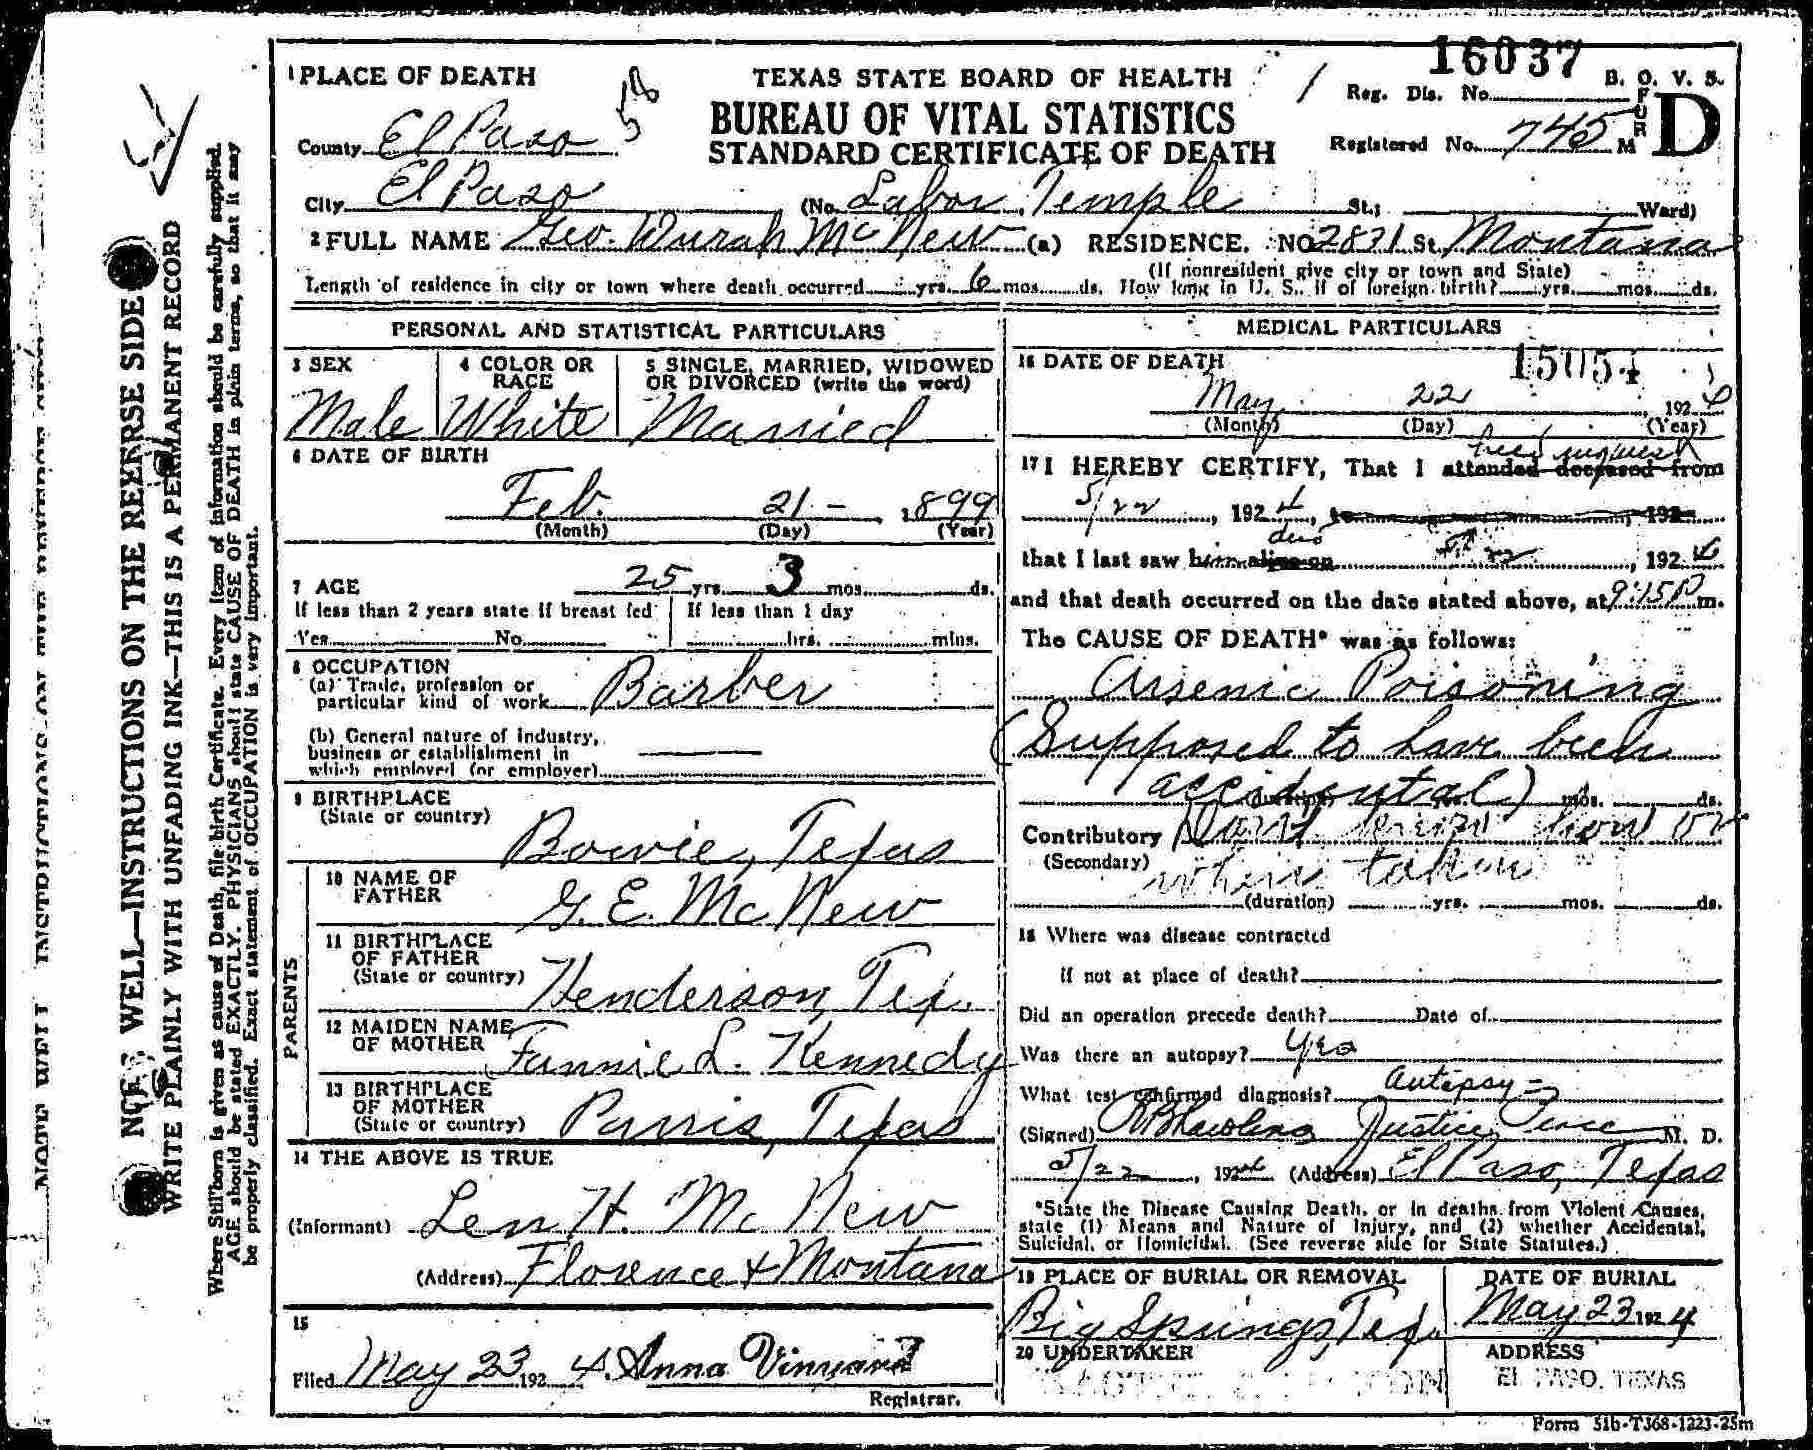 16037
1 PLACE OF DEATH
TEXAS STATE BOARD OF HEALTH
BUREAU OF VITAL STATISTICS
STANDARD CERTIFICATE OF DEATH
Reg. Dis. No.
B. O. V. S.
FORM D
Registered No. 745
County El Paso
City El Paso (No. Labor Temple St.; Ward)
2 FULL NAME Geo. Durah McNew (a) RESIDENCE. NO 2831 St. Montana
(If nonresident give city or town and State)
Length of residence in city or town where death occurred yrs. 6 mos. ds. How long in U. S., if of foreign birth? yrs. mos. ds.
PERSONAL AND STATISTICAL PARTICULARS
3 SEX
Male
4 COLOR OR RACE
White
5 SINGLE, MARRIED, WIDOWED
OR DIVORCED (write the word)
Married
6 DATE OF BIRTH
Feb. 21 - , 1899
(Month) (Day) (Year)
7 AGE 25 yrs. 3 mos. ds.
If less than 2 years state if breast fed
Yes No
If less than 1 day
hrs. mins.
8 OCCUPATION
(a) Trade, profession or
particular kind of work Barber
(b) General nature of industry,
business or establishment in
which employed (or employer)
9 BIRTHPLACE
(State or country)
Bowie, Texas
PARENTS
10 NAME OF
FATHER G. E. McNew
11 BIRTHPLACE
OF FATHER
(State or country) Henderson, Tex.
12 MAIDEN NAME
OF MOTHER Fannie L. Kennedy
13 BIRTHPLACE
OF MOTHER
(State or country) Parris, Texas
14 THE ABOVE IS TRUE
(Informant) Len H. McNew
(Address) Florence & Montana
15
Filed May 23 1924. Anna Vinyard
Registrar.
MEDICAL PARTICULARS
16 DATE OF DEATH
15054
May 22 , 1924
(Month) (Day) (Year)
held inquest
17 I HEREBY CERTIFY, That I attended deceased from
5/22, 1924, to , 192
that I last saw him alive on 22, 1924
and that death occurred on the date stated above, at 9:15 P m.
The CAUSE OF DEATH* was as follows:
Arsenic Poisoning
(Supposed to have been
accidental)
(duration) mos. ds.
Contributory Dont know how or
(Secondary) when taken
(duration) yrs. mos. ds.
18 Where was disease contracted
if not at place of death?
Did an operation precede death? Date of
Was there an autopsy? Yes
What test confirmed diagnosis? Autopsy -
(Signed) Justice Peace M. D.
5/22, 1924 (Address) El Paso, Texas
*State the Disease Causing Death, or in deaths from Violent Causes,
state (1) Means and Nature of Injury, and (2) whether Accidental,
Suicidal, or Homicidal. (See reverse side for State Statutes.)
19 PLACE OF BURIAL OR REMOVAL
Big Springs, Tex.
DATE OF BURIAL
May 23 1924
20 UNDERTAKER
ADDRESS
EL PASO, TEXAS
Form 51b-T368-1223-25m
WELL—INSTRUCTIONS ON THE REVERSE SIDE
WRITE PLAINLY WITH UNFADING INK—THIS IS A PERMANENT RECORD
Where Stillborn is given as cause of Death, file birth Certificate. Every item of information should be carefully supplied.
AGE should be stated EXACTLY. PHYSICIANS should state CAUSE OF DEATH in plain terms, so that it may
be properly classified. Exact statement of OCCUPATION is very important.